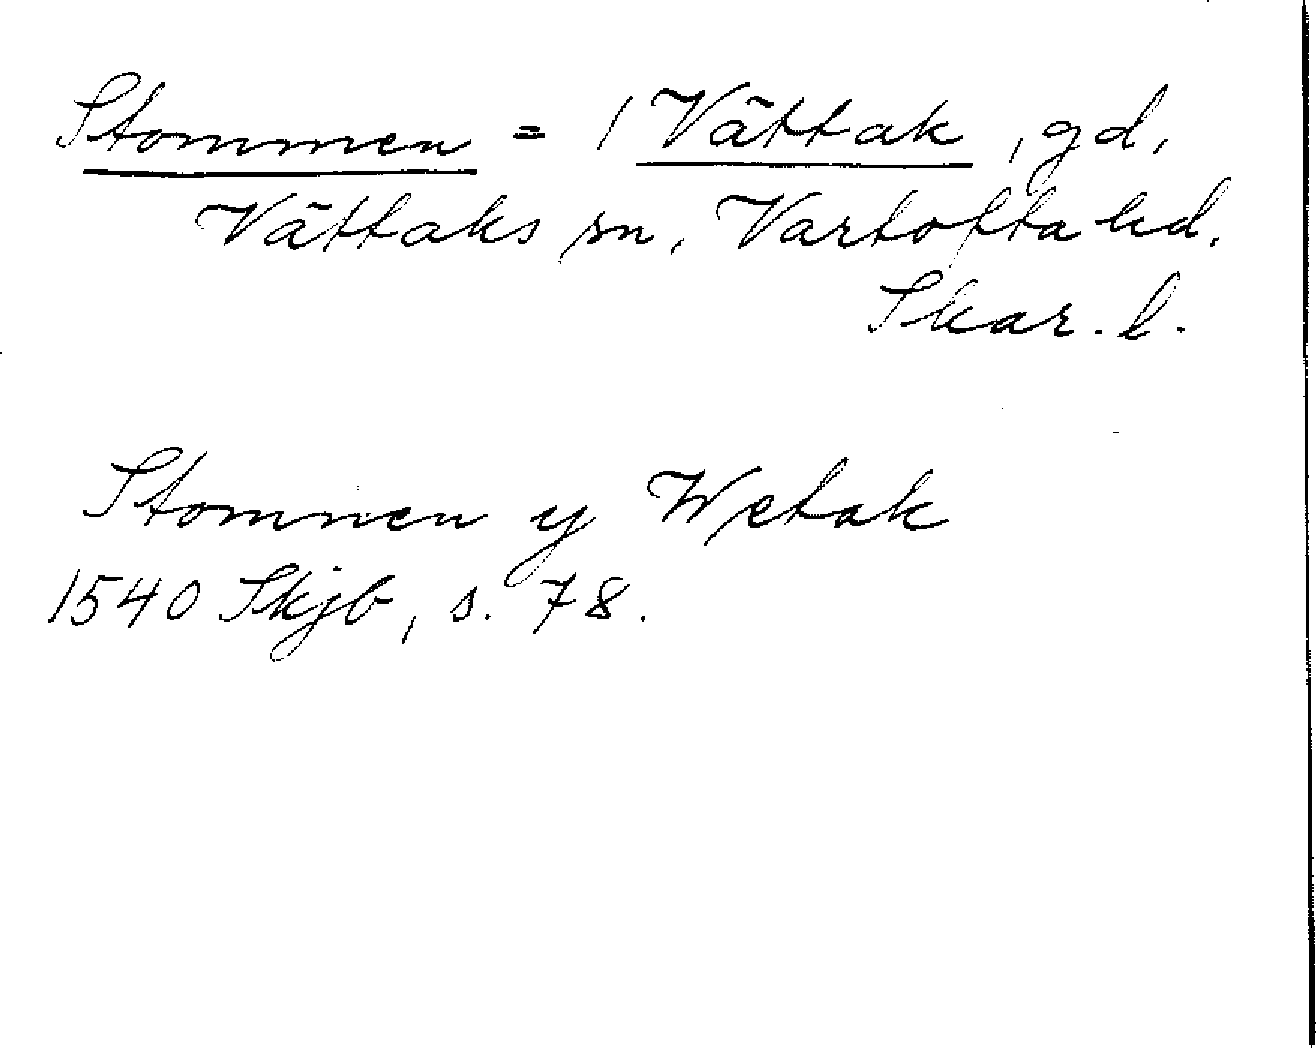 Stommen = 1 Vättak, gd,
Vättaks sn, Vartofta hd.
Skar. l.
Stomnen y Wetak
1540 Skjb, s. 78.